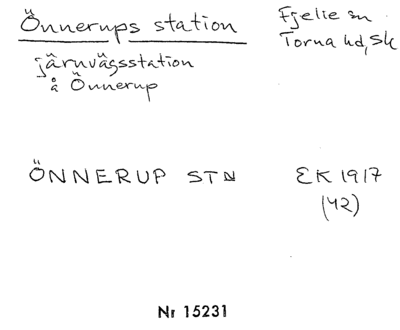 Önnerups station
Fjelie sn
Torna hd, Sk
järnvägsstation
å Önnerup
ÖNNERUP STN
EK 1917
(42)
Nr 15231